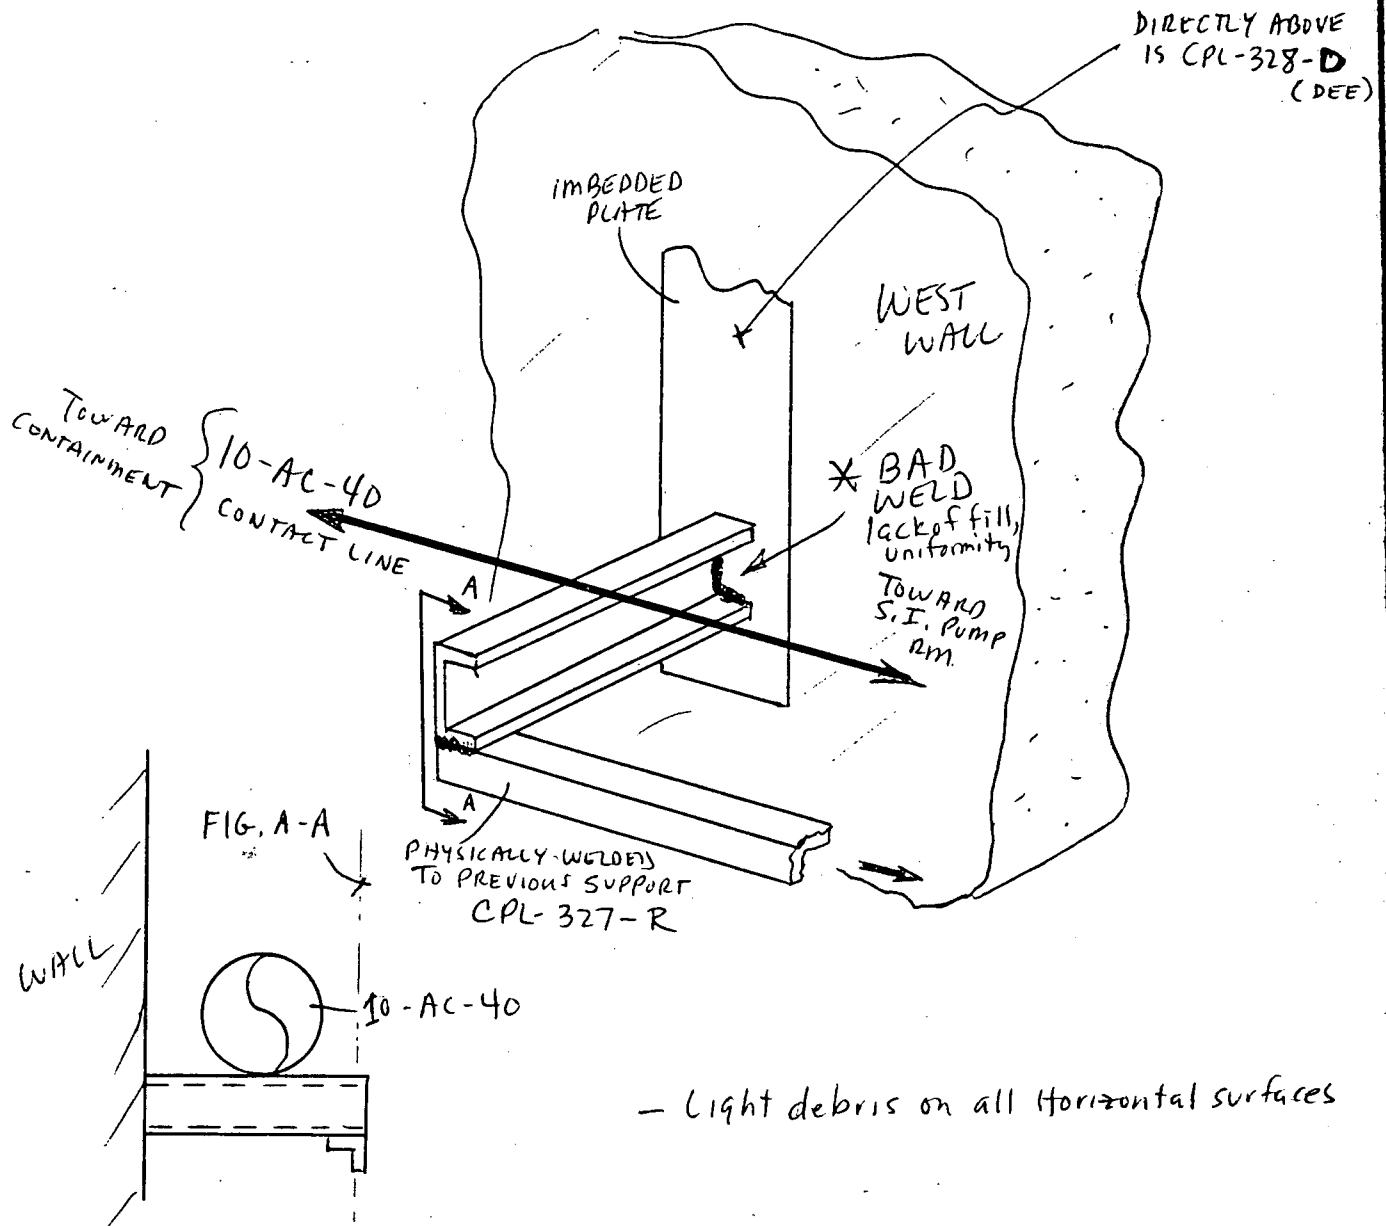 DIRECTLY ABOVE
IS CPL-328-D
(DEE)
IMBEDDED
PLATE
WEST
WALL
TOWARD
CONTAINMENT
10-AC-40
CONTACT LINE
* BAD
WELD
lack of fill,
uniformity
TOWARD
S.I. PUMP
RM.
A
A
FIG. A-A
PHYSICALLY-WELDED
TO PREVIOUS SUPPORT
CPL-327-R
WALL
10-AC-40
- Light debris on all Horizontal surfaces